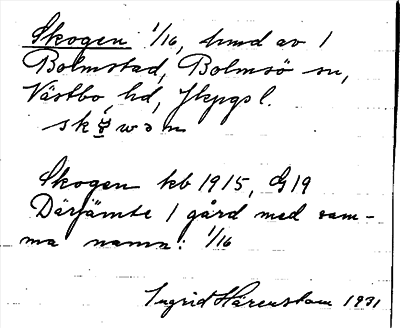 Skogen 1/16, hmd av 1
Bolmstad, Bolmsö sn,
Västbo hd, Jkpgs l.
Skogen kb 1915, G19
Därjämte 1 gård med sam-
ma namn: 1/16
Ingrid Härenstam 1931